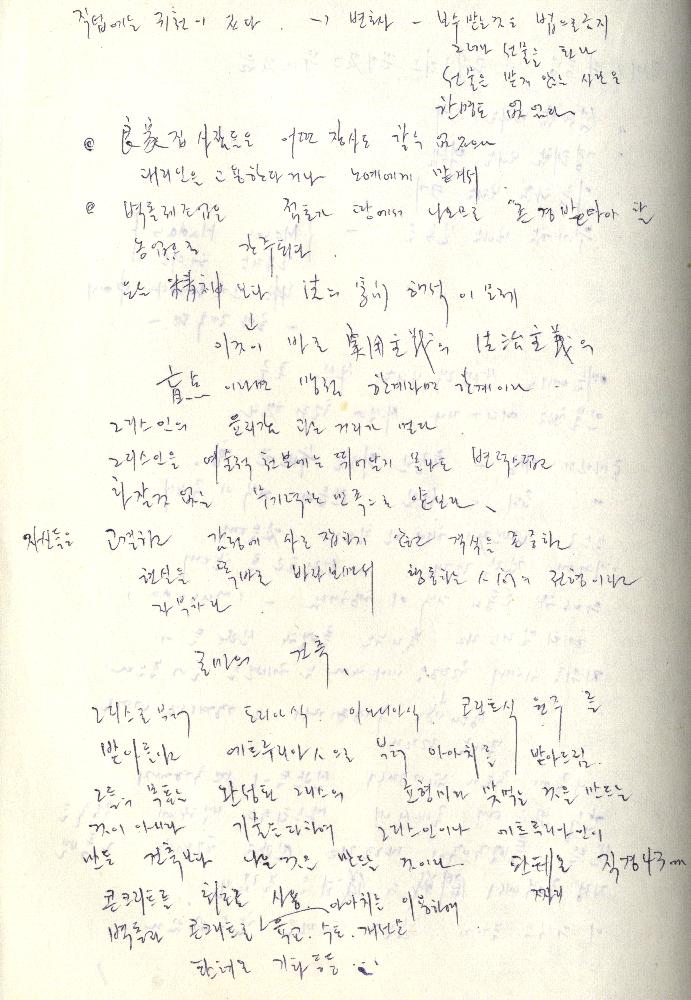 직업에는 귀천이 있다. → 변호사 - 보수 받는것은 법으로 금지
그러나 선물은 된다
선물을 받지 않은 사람은
한명도 없었다.
@ 良家집 사람들은 어떤 장사도 할수 없으나
대리인을 고용한다거나 노예에게 맡겨서
@ 벽돌제조업은 점토가 땅에서 나오므로 "존경받아야 할
농업으로 간주된다.
精神 보다 法의 해석이 문제
↓
이것이 바로 法治主義의
盲点 이라면 맹점 한계라면 한계이다.
그리스인의 윤리감 과는 거리가 멀다
그리스인을 예술적 천분에는 뛰어날지 몰라도 변덕스럽고
하잘것 없는 민족으로 얕보다.
자신들은 고결하고 감정에 사로잡히지 않고 격식을 존중하고
현실을 똑바로 바라보면서 행동하는 전형이라고
자부하다.
로마의 건축.
그리스로부터 도리아식. 이오니아식 코린트식 원주를
받아들이고 에트루리아인으로부터 아아치를 받아드림.
그들의 목표는 완성된 그리스의 조형미와 맞먹는 것을 만드는
것이 아니라 기술을 다하여 그리스인이나 에트루리아인이
만든 건축보다 나은것을 만드는 것이다. 판테온 직경 43m
콘크리트를 최초로 사용 아아치를 이용하여 찌리
벽돌과 콘크리트로 육교. 수도. 개선문
판테온 기타 등등 ...